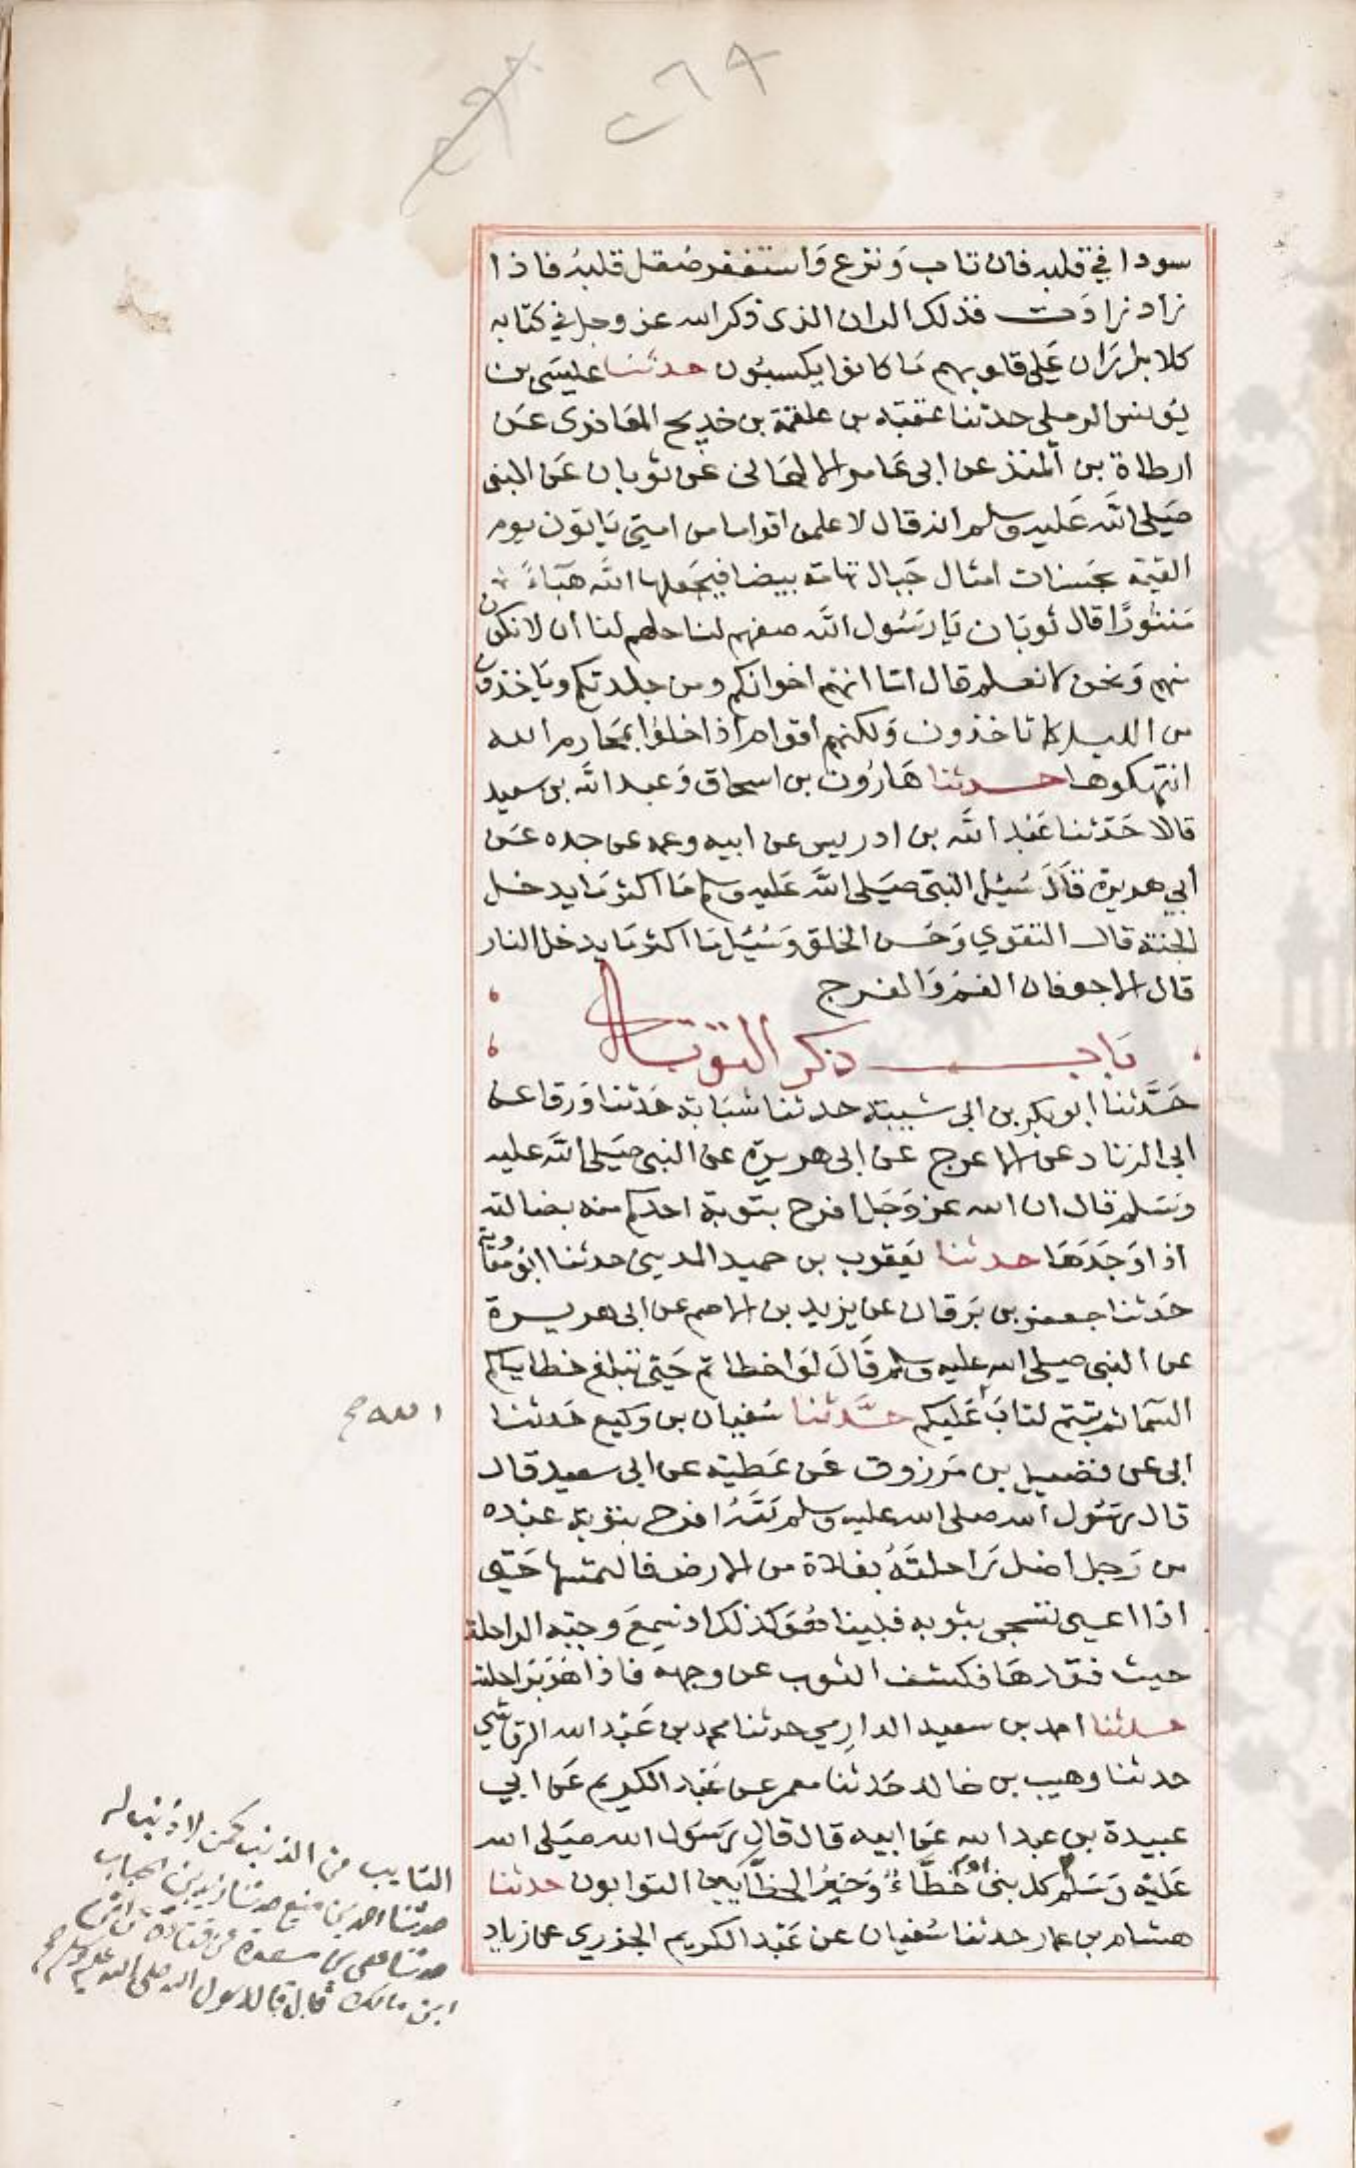 ٢٦٨
سودا في قلبه فان تاب وَنزع وَاستغفر صُقل قلبهُ فاذا
زاد زادَت فذلك الران الذى ذكر الله عز وجل في كتابه
كلا بل رَان عَلى قلوبهم مَا كانوا يكسبُون حدثنا عليسَى بن
يُونس الرملى حدثنا عقبة بن علقمة بن خديج المعَافرى عَن
ارطاة بن المنذر عن ابى عَامر الالهَانى عَن ثوبان عَن النبى
صَلى اللَّه عَليه وسلم انه قال لا علمن اقواما من امتي يَاتون يوم
القيمة بحَسنات امثال جَبال تهامة بيضا فيجَعلها اللَّه هَبَاءً
مَنثورًا قال ثوبَان يَا رَسُول اللَّه صفهم لنا حلهم لنا أن لا نكون
منهم وَنحن لا نعلم قال امّا انهم اخوانكم ومن جلدتكم ويَاخذون
من الليل كما تاخذون وَلكنهم اقوام اذا خلوا بمحَارم الله
انتهكوها حدثنا هَارُون بن اسحاق وَعبد اللَّه بن سعيد
قالا حَدّثنا عَبْد اللَّه بن ادريس عن ابيه وعمه عن جده عَن
أبي هريرة قَالَ سُئِل النبى صَلى اللَّه عَليه وسلم مَا اكثر مَا يدخل
الجنة قال التقوي وَحُسن الخلق وَسُئِل مَا اكثر مَا يدخل النار
قال الاجوفان الفمُ وَالفرج
بَاب ذكر التوبة
حَدَّثنا ابو بكر بن ابى شيبة حدثنا شبَابة حَدثنا وَرقا عن
ابى الزناد عن الاعرج عن ابى هريرة عن النبى صَلى اللَّه عليه
وَسَلم قال ان الله عز وَجَل افرح بتوبة احدكم منه بضالته
اذا وَجَدَهَا حدثنا يَعقوب بن حميد المدينى حدثنا ابُو مُعَاوية
حَدثنا جعفر بن بَرقان عن يزيد بن الاصم عن ابى هريرة
عن النبى صلى الله عليه وسلم قَالَ لوَ اخطاتم حَتى تبلغ خطاياكم
السَمَا ثم تبتم لتابَ عَليكم حدَّثنا سُفيان بن وكيع حَدثنا
الله صح
ابى عن فضيل بن مَرزوق عَن عَطية عن ابى سعيد قال
قال رَسُول الله صلى الله عليه وسلم للَّهُ افرح بتوبة عبْده
من رَجل اضل رَاحلتَهُ بفلاة من الارض فالتمسها حَتى
اذا اعيى تسجى بثوبه فبينا هُوَ كذلك اذ سَمِعَ وجبة الراحلة
حيث فقدهَا فكشف الثوب عن وجهه فاذا هُوَ برَاحلته
حدثنا احمد بن سعيد الدارمي حدثنا محمد بن عَبْد الله الرقاشي
حدثنا وهيب بن خالد حَدثنا معمر عن عَبْد الكريم عَن ابي
عبيدة بن عبد الله عَن ابيه قال قال رَسَول الله صَلى الله
عَليْه وَسَلم كل بنى ادم خَطَّاءٌ وَخَيرُ الخطَّايين التوابون حدثنا
هشام بن عمار حدثنا سُفيان عن عَبْد الكريم الجزري عن زياد
التايب من الذنب كمن لا ذنب له
حدثنا احمد بن منيع حدثنا زيد بن الحباب
حدثنا على بن مسعدة عن قتادة عن انس
ابن مالك قال قال رسول الله صلى الله عليه وسلم صح